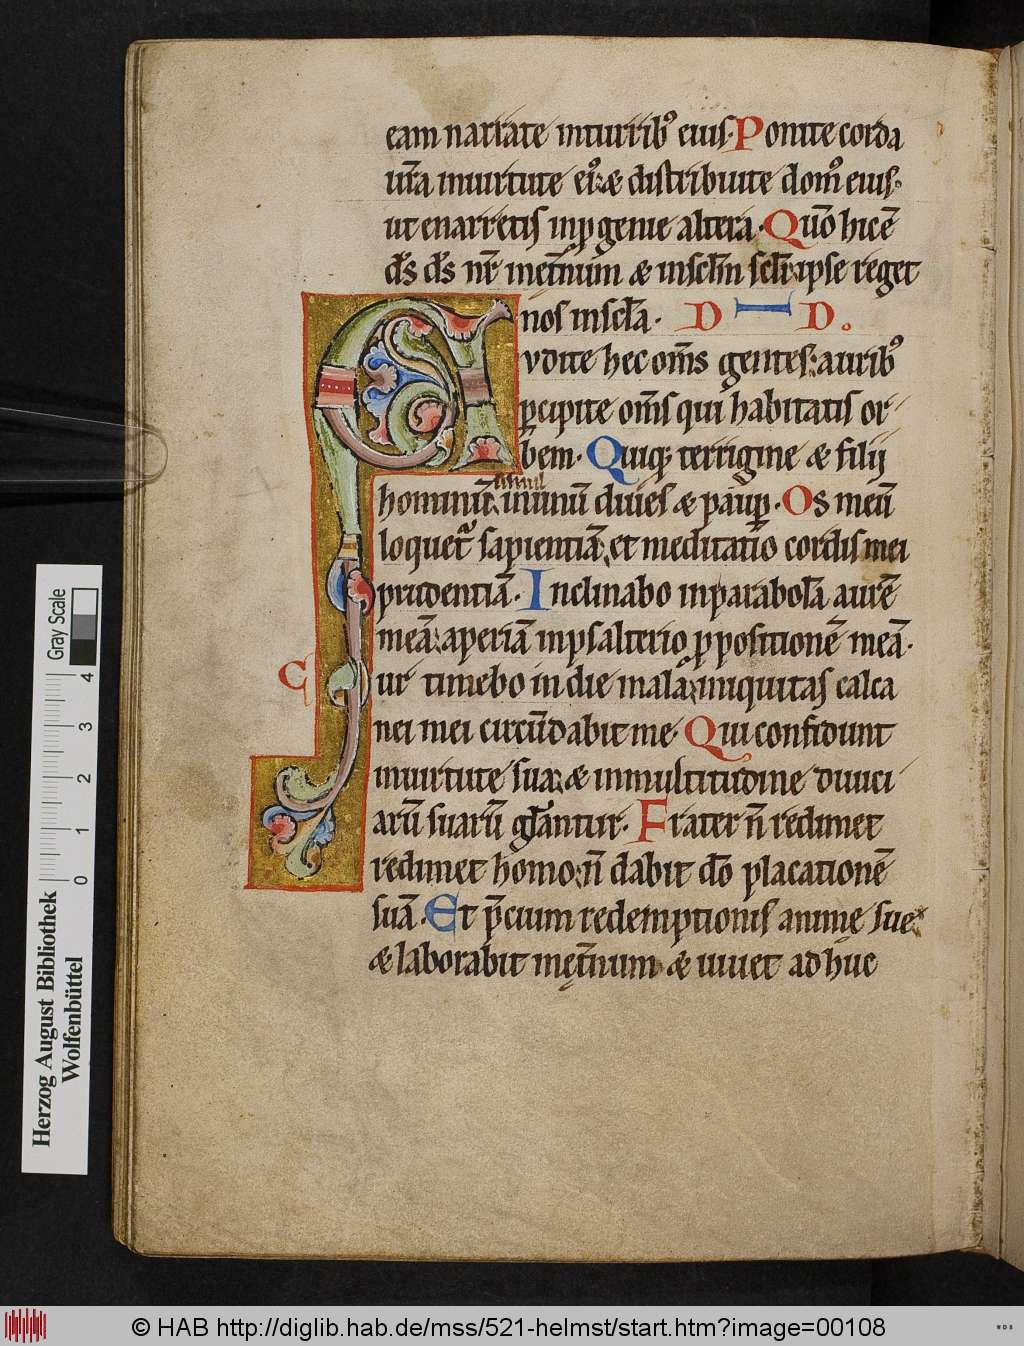 eam narrate inturrib᷒ eius. Ponite corda
ur̄a inuirtute ei᷒: & distribuite dom᷒ eius.
ut enarretis inp̱genie altera. Qm̄o hic ē
d̄s d̄s nr̄ inet̄num & insclm̄ scl̄i: ipse reget
nos inscl̄a. D D.
Audite hec om̄s gentes: aurib᷒
p̱cipite om̄s qui habitatis or
bem. Quiq; terrigine & filij
simul
hominū: inunū diues & paup̱. Os meū
loquet᷑ sapientiā: et meditatio cordis mei
prudentiā. Inclinabo inparabolā aurē
meā: aperiā inpsalterio p̱positionē meā.
C ur timebo in die mala: iniquitas calca
nei mei circūdabit me. Qui confidunt
inuirtute sua: & inmultitudine diuici
arū suarū gl̄antur. Frater n̄ redimet
redimet homo: n̄ dabit dō placationē
suā. Et p̄cium redemptionis animę sue:
& laborabit inęt̄num & uiuet adhuc
Herzog August Bibliothek
Wolfenbüttel
Gray Scale
0 1 2 3 4
© HAB http://diglib.hab.de/mss/521-helmst/start.htm?image=00108